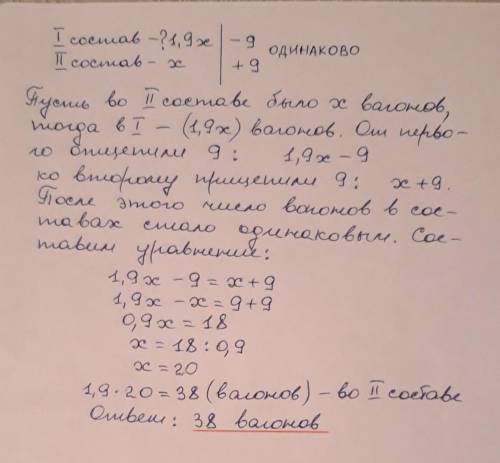 I состав -? 1,9x | -9 ОДИНАКОВО
II состав - x | +9
Пусть во II составе было x вагонов,
тогда в I - (1,9x) вагонов. От перво-
го отцепили 9: 1,9x - 9
ко второму прицепили 9: x + 9.
После этого число вагонов в сос-
тавах стало одинаковым. Сос-
тавим уравнение:
1,9x - 9 = x + 9
1,9x - x = 9 + 9
0,9x = 18
x = 18 : 0,9
x = 20
1,9 · 20 = 38 (вагонов) - во II составе
Ответ: 38 вагонов